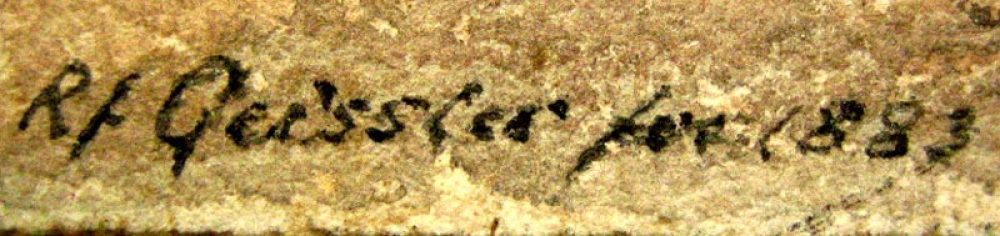 Rf Geissler fec. 1883